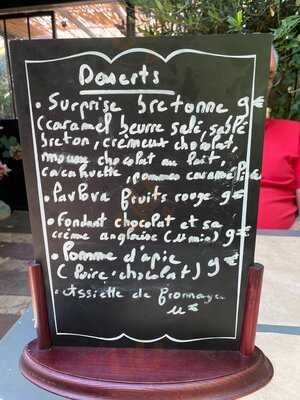 Desserts
• Surprise bretonne 9€
(caramel beurre salé, sablé
breton, crémeux chocolat,
mousse chocolat au lait,
cacahuette, pommes caramélisé
• Pavlova fruits rouge 9€
• Fondant chocolat et sa
crème anglaise (11 min) 9€
• Pomme d'apie
(Poire-chocolat) 9€
• Assiette de fromages
11€